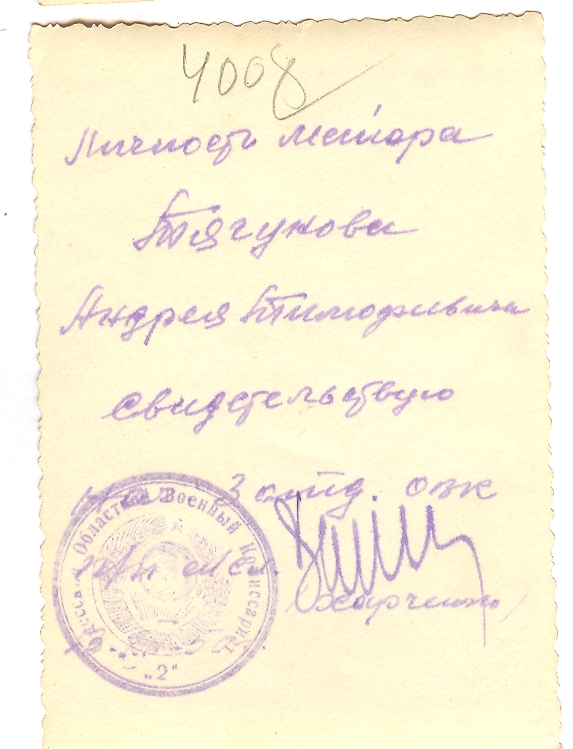 4008
Личность майора
Тягунова
Андрея Тимофиевича
свидетельствую
3 отд. овк
Харченко
Областной Военный Комиссариат
"2"